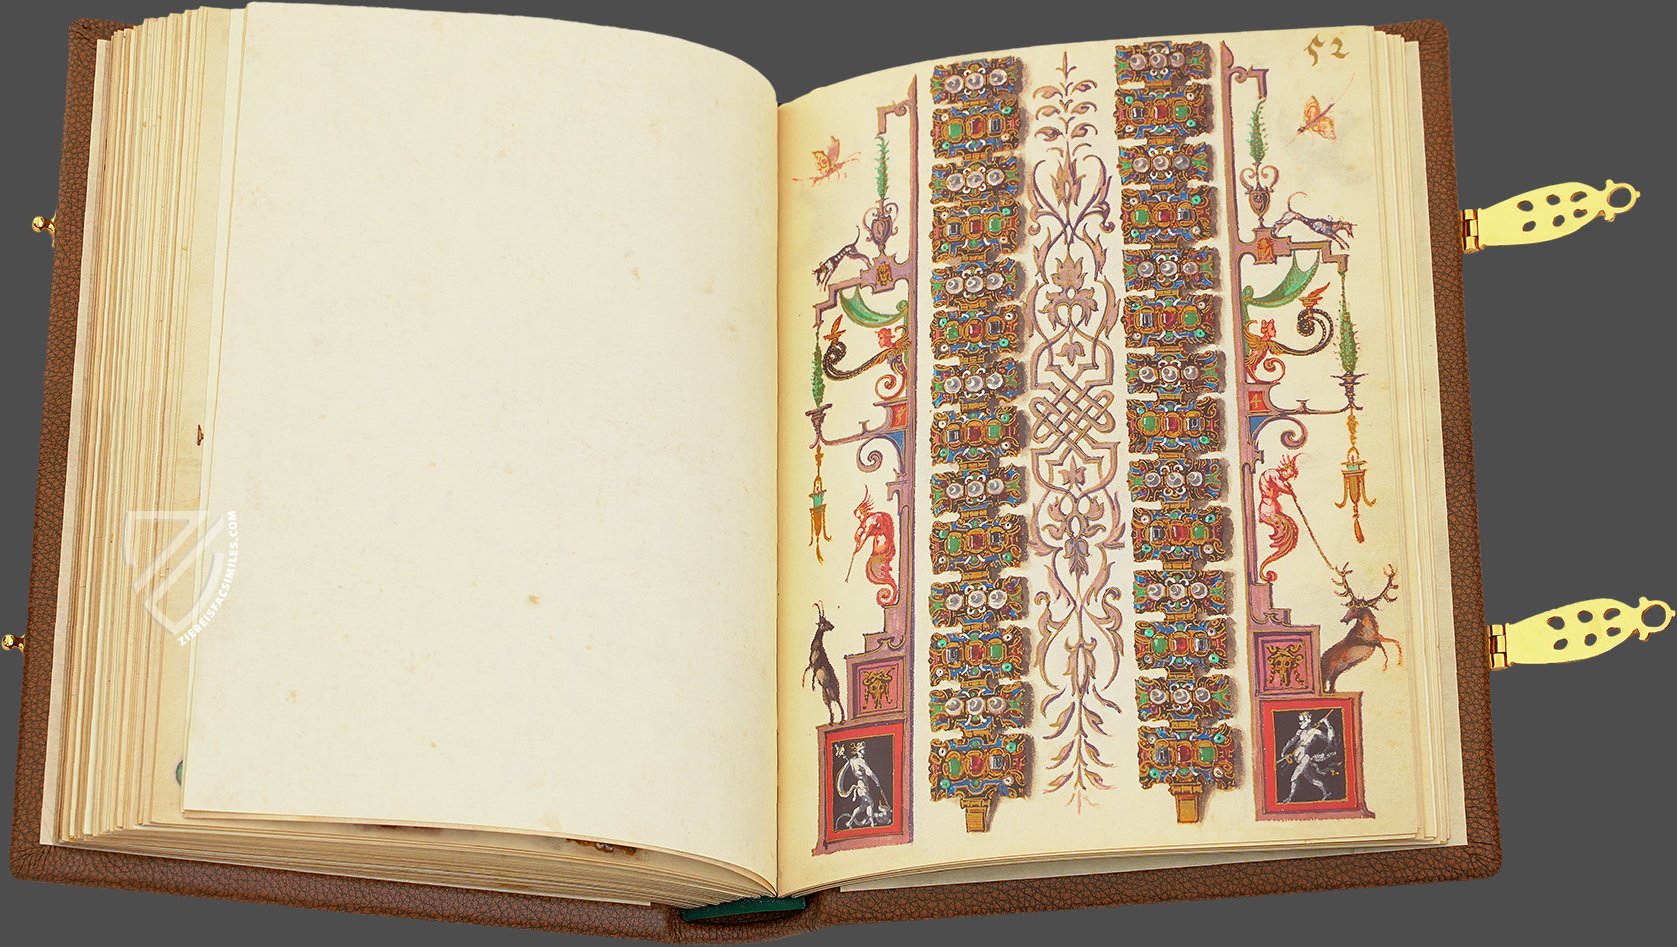 52
ZIEREISFACSIMILES.COM